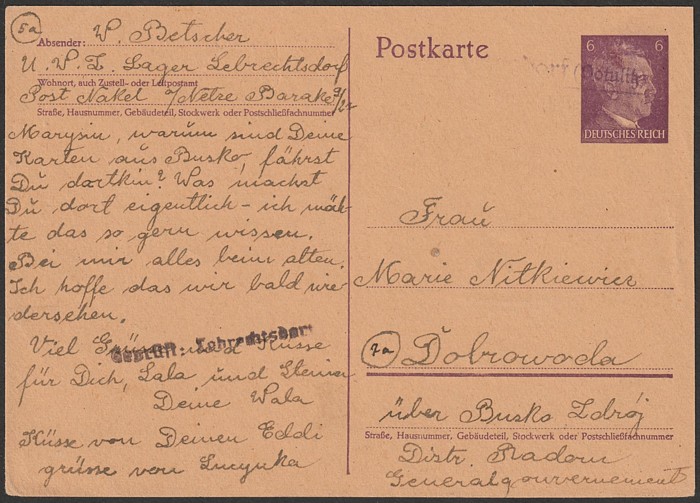 5a
Absender: W. Betscher
U. W. Z. Lager Lebrechtsdorf
Wohnort, auch Zustell- oder Leitpostamt
Post Nakel /Netze Barake
Straße, Hausnummer, Gebäudeteil, Stockwerk oder Postschließfachnummer
Marysiu, warum sind Deine
Karten aus Busko, fährst
Du dortkin? Was machst
Du dort eigentlich – ich möch-
te das so gern wissen.
Bei mir alles beim alten.
Ich hoffe das wir bald wie
dersehen.
Viel Grüsse und Küsse
Geprüft: Lebrechtsdorf
für Dich, Lala und Kleinen
Deine Wala
Küsse von Deinen Eddi
grüsse von Lucynka
Postkarte
6 6
DEUTSCHES REICH
dorf (Potulitz)
Frau
Marie Nitkiewicz
7a Dobrowoda
über Busko Zdrój
Straße, Hausnummer, Gebäudeteil, Stockwerk oder Postschließfachnummer
Distr. Radom
Generalgouvernement